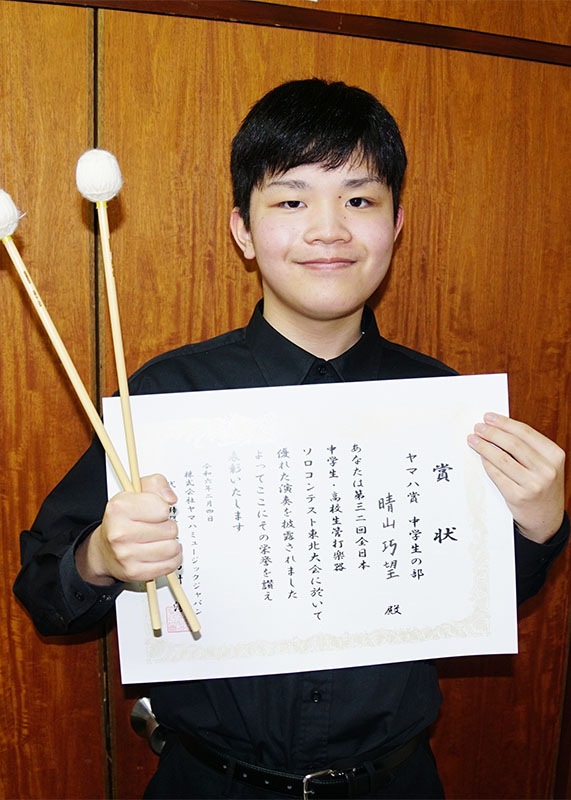 賞状
ヤマハ賞 中学生の部
晴山 巧望 殿
あなたは第三二回全日本
中学生・高校生管打楽器
ソロコンテスト東北大会に於いて
優れた演奏を披露されました
よってここにその栄誉を讃え
表彰いたします
令和六年二月四日
株式会社ヤマハミュージックジャパン